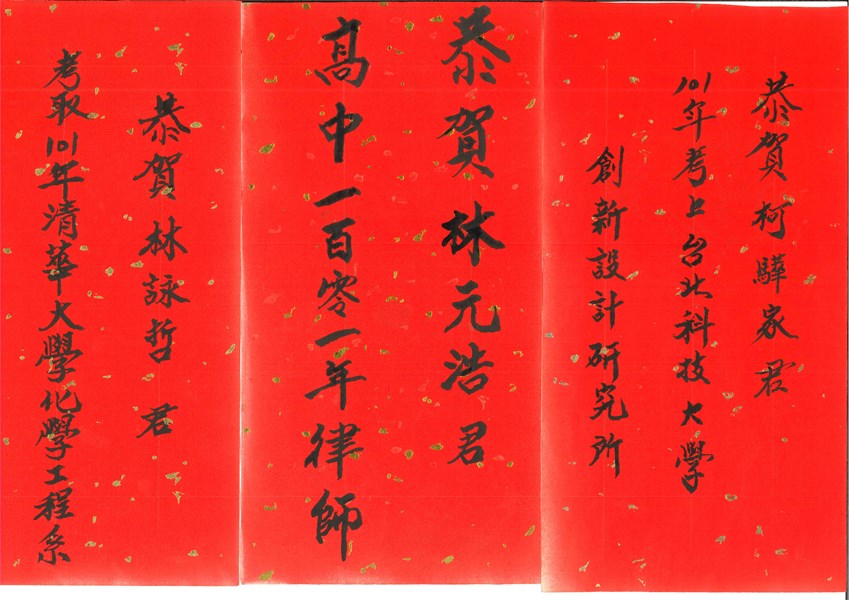 恭賀柯驊家君
101年考上台北科技大學
創新設計研究所
恭賀林元浩君
高中一百零一年律師
恭賀林詠哲君
考取101年清華大學化學工程系